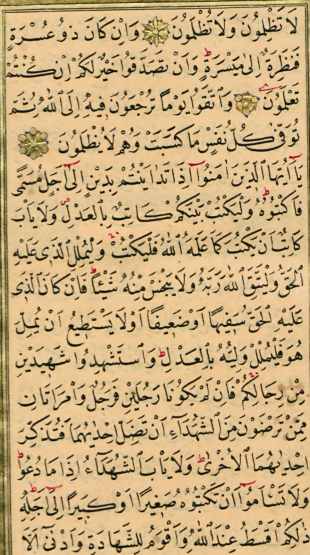 لَا تَظْلِمُونَ وَلَا تُظْلَمُونَ وَاِنْ كَانَ ذُو عُسْرَةٍ
فَنَظِرَةٌ اِلٰى مَيْسَرَةٍ وَاَنْ تَصَدَّقُوا خَيْرٌ لَكُمْ اِنْ كُنْتُمْ
تَعْلَمُونَ وَاتَّقُوا يَوْمًا تُرْجَعُونَ فِيهِ اِلَى اللّٰهِ ثُمَّ
تُوَفّٰى كُلُّ نَفْسٍ مَا كَسَبَتْ وَهُمْ لَا يُظْلَمُونَ
يَا اَيُّهَا الَّذِينَ اٰمَنُوا اِذَا تَدَايَنْتُمْ بِدَيْنٍ اِلٰى اَجَلٍ مُسَمًّى
فَاكْتُبُوهُ وَلْيَكْتُبْ بَيْنَكُمْ كَاتِبٌ بِالْعَدْلِ وَلَا يَاْبَ
كَاتِبٌ اَنْ يَكْتُبَ كَمَا عَلَّمَهُ اللّٰهُ فَلْيَكْتُبْ وَلْيُمْلِلِ الَّذِي عَلَيْهِ
الْحَقُّ وَلْيَتَّقِ اللّٰهَ رَبَّهُ وَلَا يَبْخَسْ مِنْهُ شَيْئًا فَاِنْ كَانَ الَّذِي
عَلَيْهِ الْحَقُّ سَفِيهًا اَوْ ضَعِيفًا اَوْ لَا يَسْتَطِيعُ اَنْ يُمِلَّ
هُوَ فَلْيُمْلِلْ وَلِيُّهُ بِالْعَدْلِ وَاسْتَشْهِدُوا شَهِيدَيْنِ
مِنْ رِجَالِكُمْ فَاِنْ لَمْ يَكُونَا رَجُلَيْنِ فَرَجُلٌ وَامْرَاَتَانِ
مِمَّنْ تَرْضَوْنَ مِنَ الشُّهَدَاءِ اَنْ تَضِلَّ اِحْدٰيهُمَا فَتُذَكِّرَ
اِحْدٰيهُمَا الْاُخْرٰى وَلَا يَاْبَ الشُّهَدَاءُ اِذَا مَا دُعُوا
وَلَا تَسْاَمُوا اَنْ تَكْتُبُوهُ صَغِيرًا اَوْ كَبِيرًا اِلٰى اَجَلِهِ
ذٰلِكُمْ اَقْسَطُ عِنْدَ اللّٰهِ وَاَقْوَمُ لِلشَّهَادَةِ وَاَدْنٰى اَلَّا